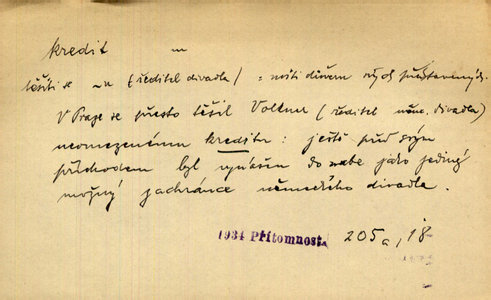 kredit m
těšiti se ~u (ředitel divadla) : míti důvěru svých představených.
V Praze se přesto těšil Volkner (ředitel něm. divadla)
neomezenému kreditu : ještě před svým
příchodem byl vynášen do nebe jako jediný
možný zachránce německého divadla.
1934 Přítomnost 205a, 18